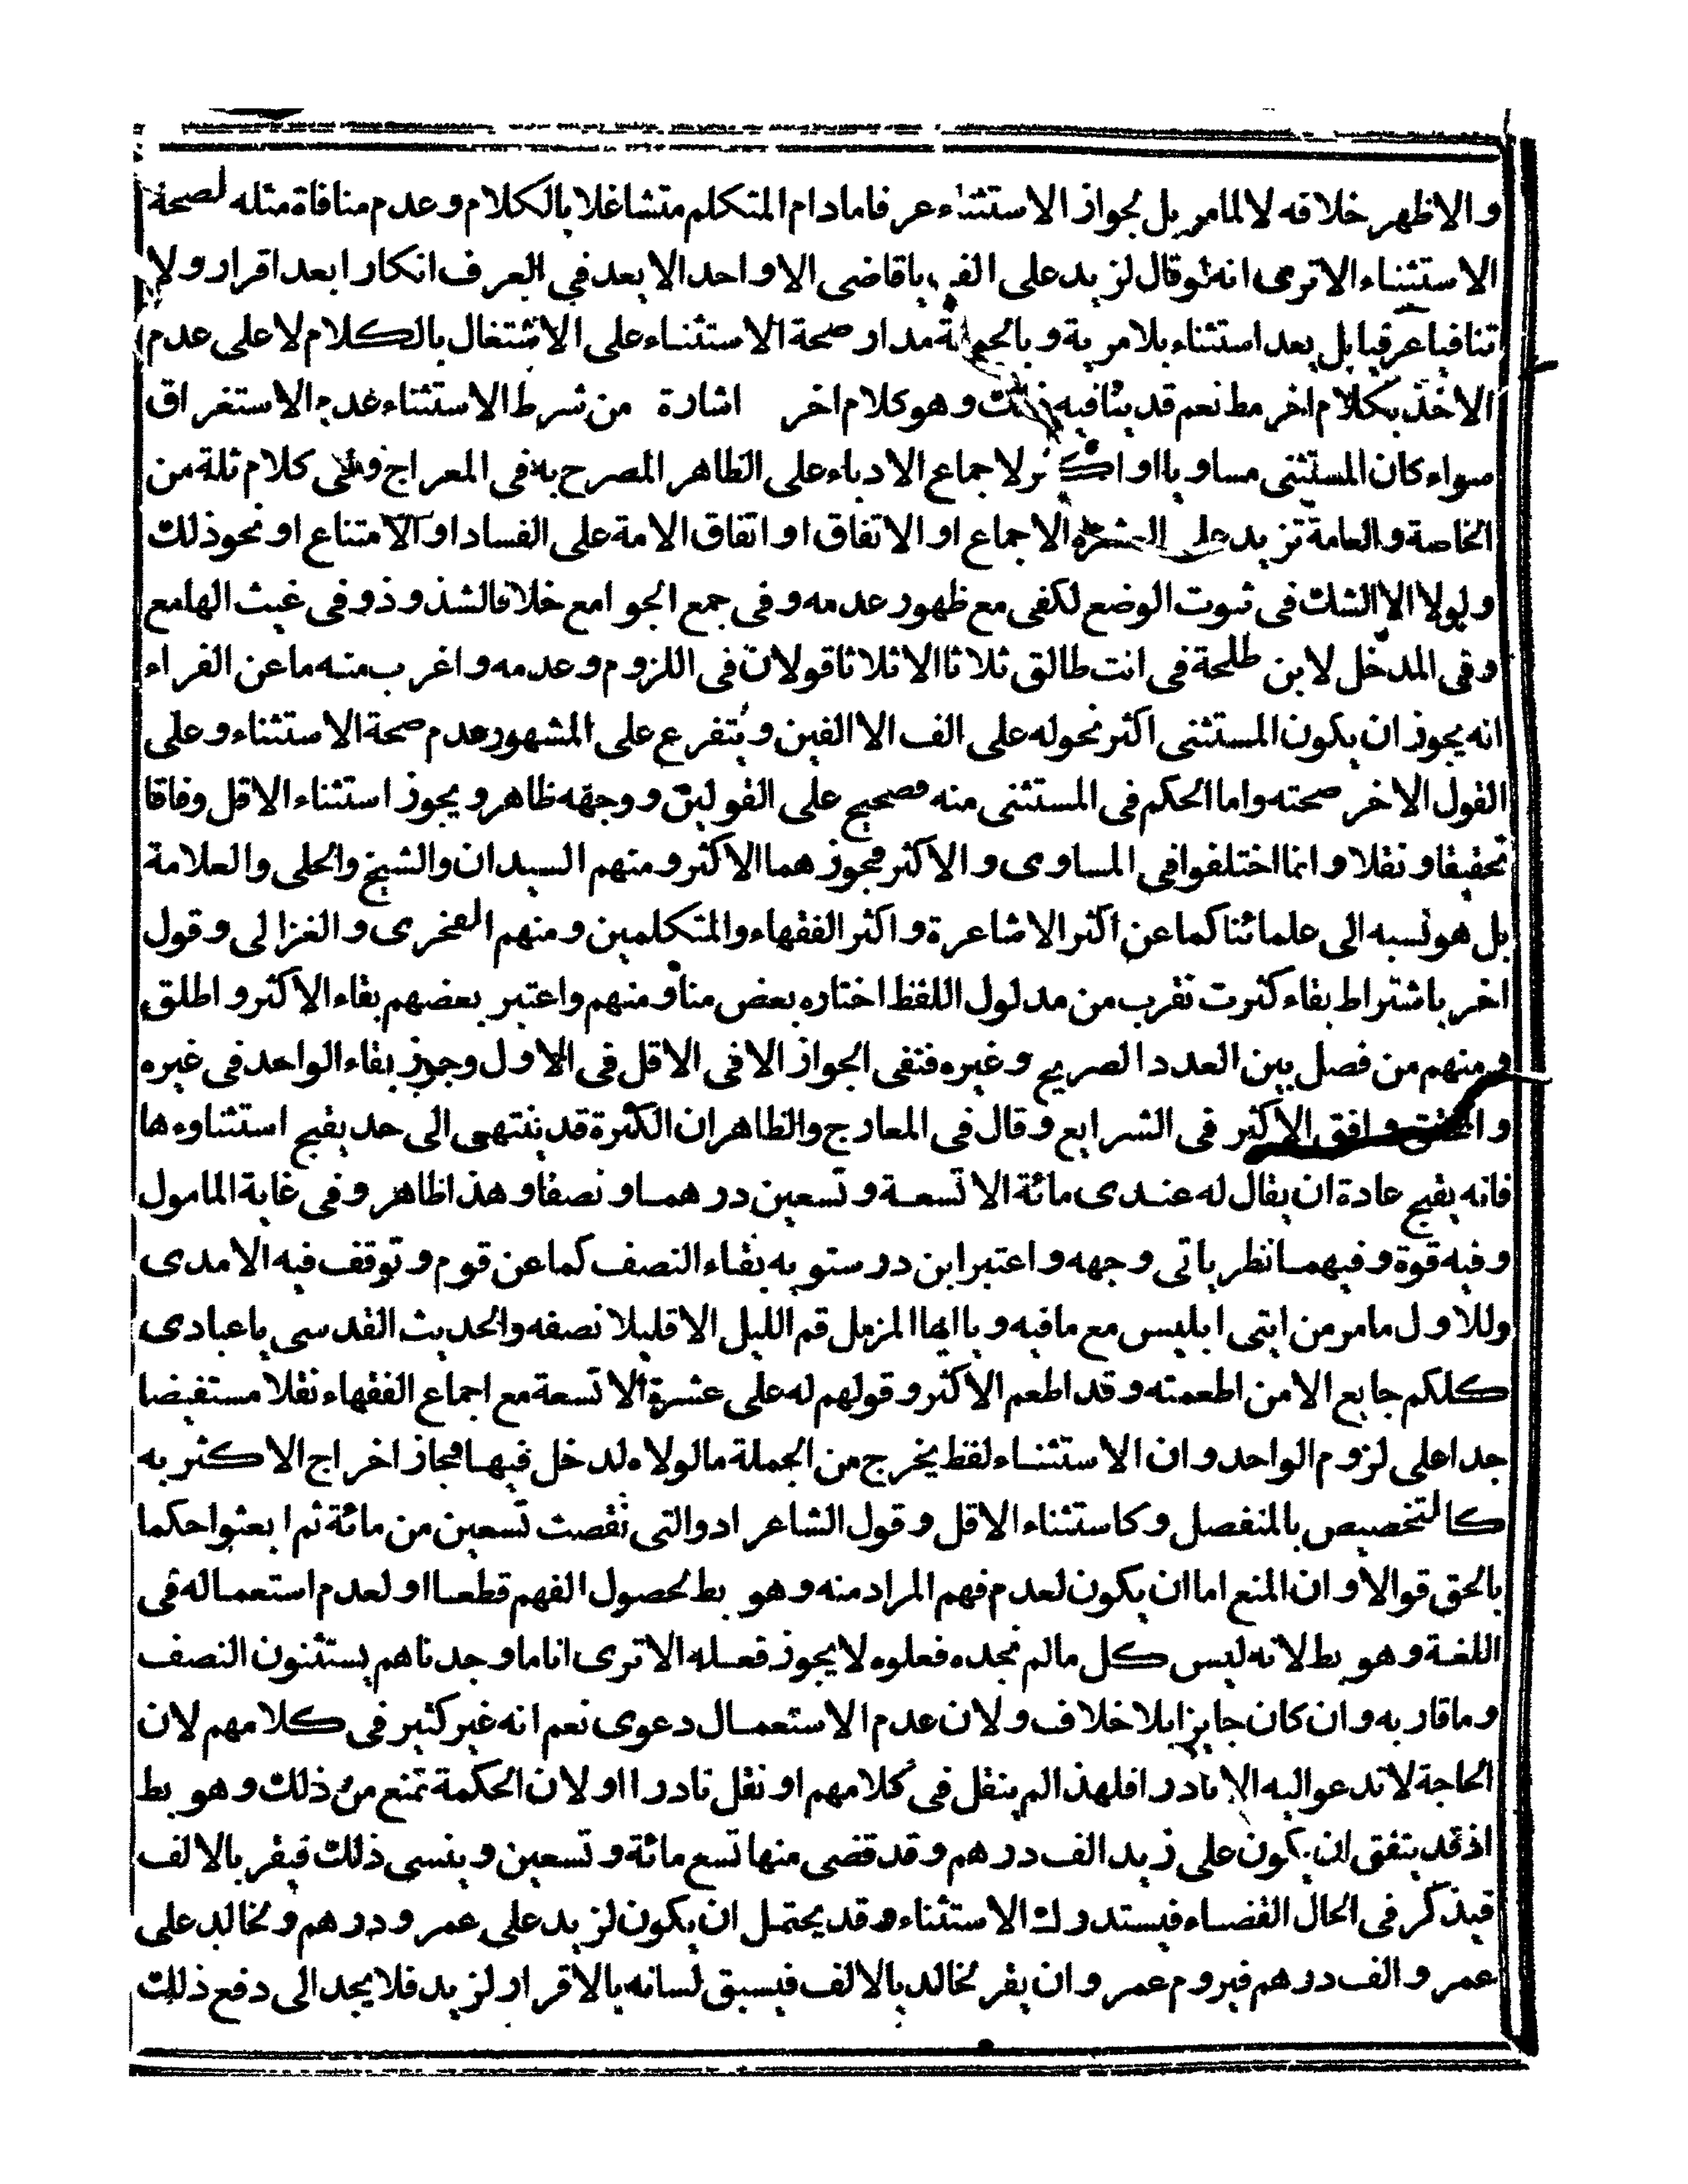 والاظهر خلافه لا لمامر بل لجواز الاستثناء عرفا مادام المتكلم متشاغلا بالكلام وعدم منافاة مثله لصحة
الاستثناء الا ترى انه لو قال لزيد على الف يا قاضى الا واحد الا بعد في العرف انكارا بعد اقرار ولا
تنافيا عرفيا بل يعد استثناء بلا مرية وبالجملة مدار صحة الاستثناء على الاشتغال بالكلام لا على عدم
الاخذ بكلام اخر مط نعم قد ينافيه ذلك وهو كلام اخر اشارة من شرط الاستثناء عدم الاستغراق
سواء كان المستثنى مساويا او اكثر لاجماع الادباء على الظاهر المصرح به في المعراج وفى كلام ثلة من
الخاصة والعامة تزيد على العشرة الاجماع او الاتفاق او اتفاق الامة على الفساد او الامتناع او نحو ذلك
ولولا الا الشك فى ثبوت الوضع لكفى مع ظهور عدمه وفى جمع الجوامع خلافا لشذوذ وفى غيث الهامع
وفى المدخل لابن طلحة فى انت طالق ثلاثا الا ثلاثا قولان فى اللزوم وعدمه واغرب منه ما عن الفراء
انه يجوز ان يكون المستثنى اكثر نحو له على الف الا الفين ويتفرع على المشهور عدم صحة الاستثناء وعلى
القول الاخر صحته واما الحكم فى المستثنى منه فصحيح على القولين ووجهه ظاهر ويجوز استثناء الاقل وفاقا
تحقيقا ونقلا وانما اختلفوا فى المساوى والاكثر فجوزهما الاكثر ومنهم السيدان والشيخ والحلى والعلامة
بل هو نسبه الى علمائنا كما عن اكثر الاشاعرة واكثر الفقهاء والمتكلمين ومنهم الفخرى والغزالى وقول
اخر باشتراط بقاء كثرت تقرب من مدلول اللفظ اختاره بعض منا ومنهم واعتبر بعضهم بقاء الاكثر واطلق
ومنهم من فصل بين العدد الصريح وغيره فنفى الجواز الا فى الاقل فى الاول وجوز بقاء الواحد فى غيره
وافق الاكثر فى الشرايع وقال فى المعارج والظاهر ان الكثرة قد ينتهى الى حد يقبح استثناوءها
فانه يقبح عادة ان يقال له عندى مائة الا تسعة وتسعين درهما ونصفا وهذا ظاهر وفى غاية المامول
وفيه قوة وفيهما نظر ياتى وجهه واعتبر ابن درستويه بقاء النصف كما عن قوم وتوقف فيه الامدى
وللاول ما مر من ايتى ابليس مع ما فيه ويا ايها المزمل قم الليل الا قليلا نصفه والحديث القدسى يا عبادى
كلكم جايع الا من اطعمته وقد اطعم الاكثر وقولهم له على عشرة الا تسعة مع اجماع الفقهاء نقلا مستفيضا
جدا على لزوم الواحد وان الاستثناء لفظ يخرج من الجملة ما لولاه لدخل فيها فجاز اخراج الاكثر به
كالتخصيص بالمنفصل وكاستثناء الاقل وقول الشاعر ادوا التى نقصت تسعين من مائة ثم ابعثوا حكما
بالحق قوالا وان المنع اما ان يكون لعدم فهم المراد منه وهو بط لحصول الفهم قطعا او لعدم استعماله فى
اللغة وهو بط لانه ليس كل ما لم نجده فعلوه لا يجوز فعله الا ترى انا ما وجدناهم يستثنون النصف
وما قاربه وان كان جايزا بلا خلاف ولان عدم الاستعمال دعوى نعم انه غير كثير فى كلامهم لان
الحاجة لا تدعو اليه الا نادرا فلهذا لم ينقل فى كلامهم او نقل نادرا او لان الحكمة تمنع من ذلك وهو بط
اذ قد يتفق ان يكون على زيد الف درهم وقد قضى منها تسع مائة وتسعين وينسى ذلك فيقر بالالف
فيذكر فى الحال القضاء فيستدرك الاستثناء وقد يحتمل ان يكون لزيد على عمرو درهم ولخالد على
عمرو الف درهم فيروم عمرو ان يقر لخالد بالالف فيسبق لسانه بالاقرار لزيد فلا يجد الى دفع ذلك